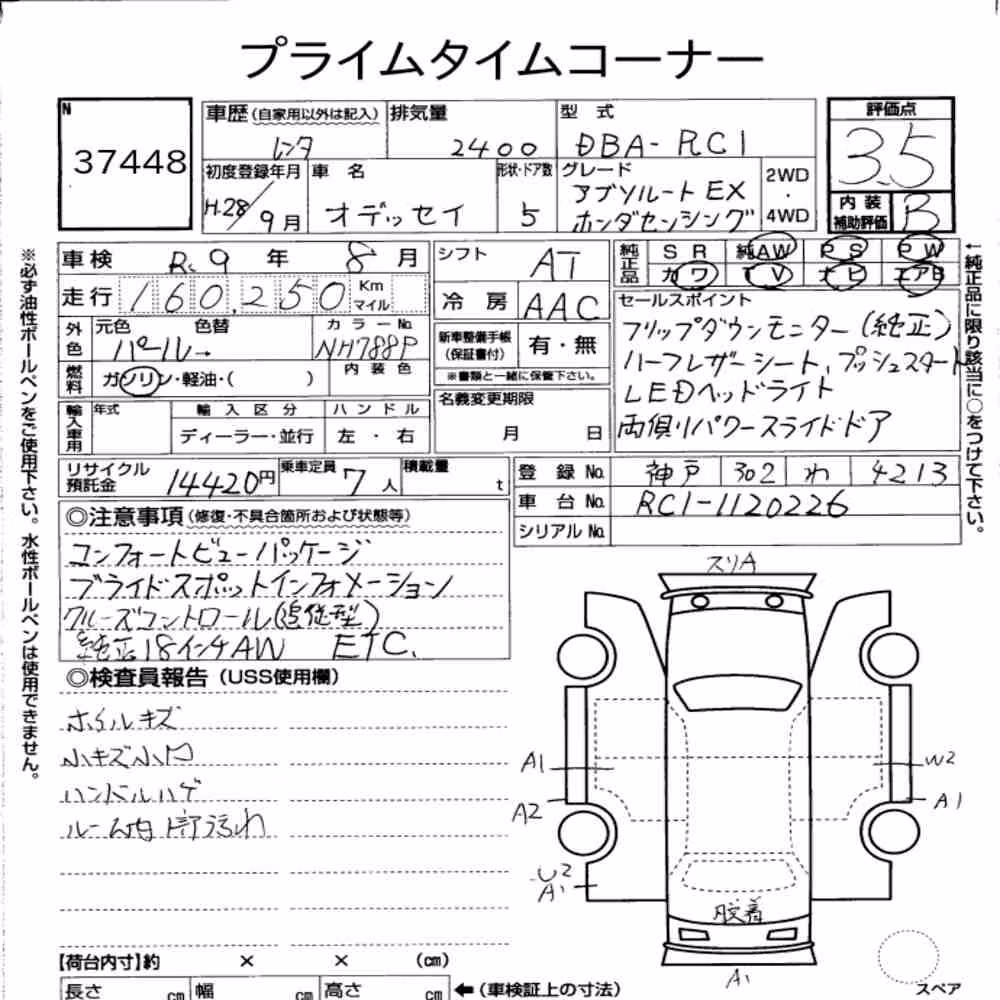 プライムタイムコーナー
N
37448
車歴(自家用以外は記入) レンタ
排気量 2400
型 式 DBA-RC1
評価点 3.5
初度登録年月 H.28/9月
車 名 オデッセイ
形状・ドア数 5
グレード アブソルート EX
ホンダセンシング
2WD・4WD
内装補助評価 B
車検 R 9 年 8 月
走行 160,250 Km マイル
シフト AT
冷 房 AAC
純正品 SR 純AW PS PW
カワ TV ナビ エアB
外色 元色 パール→ 色替
カラーNo. NH788P
内 装 色
燃料 ガソリン・軽油・( )
新車整備手帳(保証書付) 有・無
※書類と一緒に保管下さい。
セールスポイント
フリップダウンモニター(純正)
ハーフレザーシート, プッシュスタート
LEDヘッドライト
両側パワースライドドア
輸入車用 年式
輸入区分 ディーラー・並行
ハンドル 左・右
名義変更期限 月 日
リサイクル預託金 14420円
乗車定員 7人
積載量 t
登録No. 神戸 302 わ 4213
車台No. RC1-1120226
シリアルNo.
◎注意事項(修復・不具合箇所および状態等)
コンフォートビューパッケージ
ブライドスポットインフォメーション
クルーズコントロール(追従型)
純正18インチAW ETC.
◎検査員報告(USS使用欄)
ホイルキズ
小キズ小凹
ハンドルハゲ
ルーム内 汚れ
スリA
A1
A2
U2
A1
W2
A1
脱着
A1
スペア
【荷台内寸】約 × × (cm)
長さ cm 幅 cm 高さ cm ←(車検証上の寸法)
※必ず油性ボールペンをご使用下さい。水性ボールペンは使用できません。
←純正品に限り該当に○をつけて下さい。